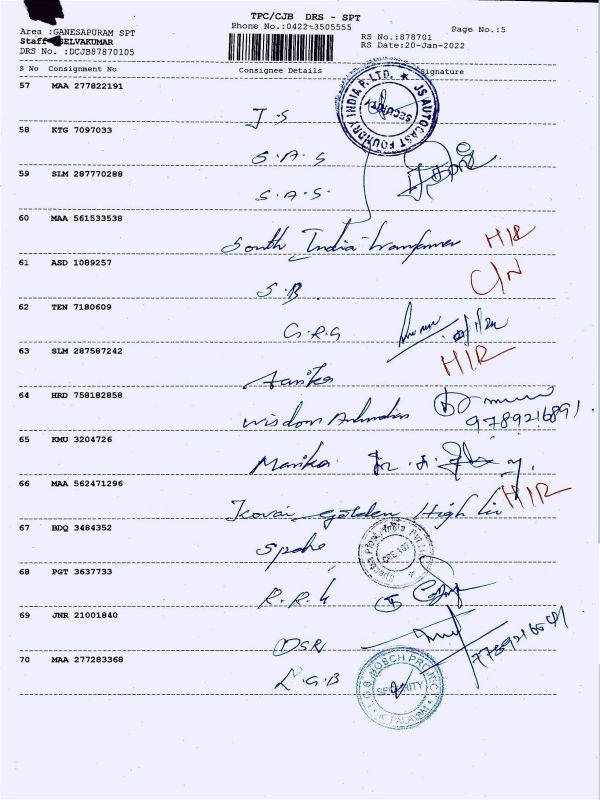 TPC/CJB DRS - SPT
Phone No.:0422-3505555
Page No.:5
Area :GANESAPURAM SPT
Staff SELVAKUMAR
DRS No. :DCJB87870105
RS No.:878701
RS Date:20-Jan-2022
S No Consignment No Consignee Details Signature
57 MAA 277822191
J.S
JS AUTOCAST FOUNDRY INDIA P. LTD. ★
SECURITY
58 KTG 7097033
S.A.S
59 SLM 287770288
S.A.S.
60 MAA 561533538
South India Transformer H/R
61 ASD 1089257
S.B. C/N
62 TEN 7180609
G.R.G
63 SLM 287587242
H/R
64 HRD 758182858
Wisdom
9789216891
65 KMU 3204726
66 MAA 562471296
Kovai Golden High H/R
67 BDQ 3484352
68 PGT 3637733
R.R.K
69 JNR 21001840
DSR
70 MAA 277283368
L.G.B
SECURITY